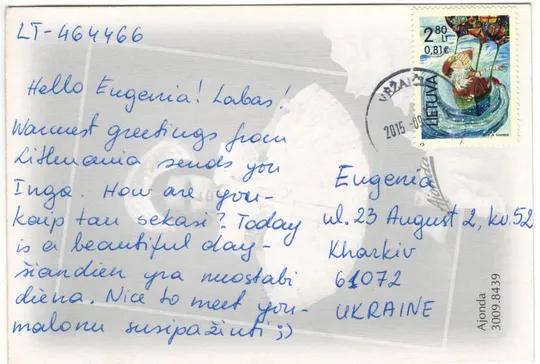 LT-464466
Hello Eugenia! Labas!
Warmest greetings from
Lithuania sends you
Inga. How are you-
kaip tau sekasi? Today
is a beautiful day-
šiandien yra nuostabi
diena. Nice to meet you-
malonu susipažinti ;)
2 80 LT
0,81€
LIETUVA
2015
Eugenia
ul. 23 August 2, kv. 52
Kharkiv
61072
UKRAINE
Ajonda
3009.8439